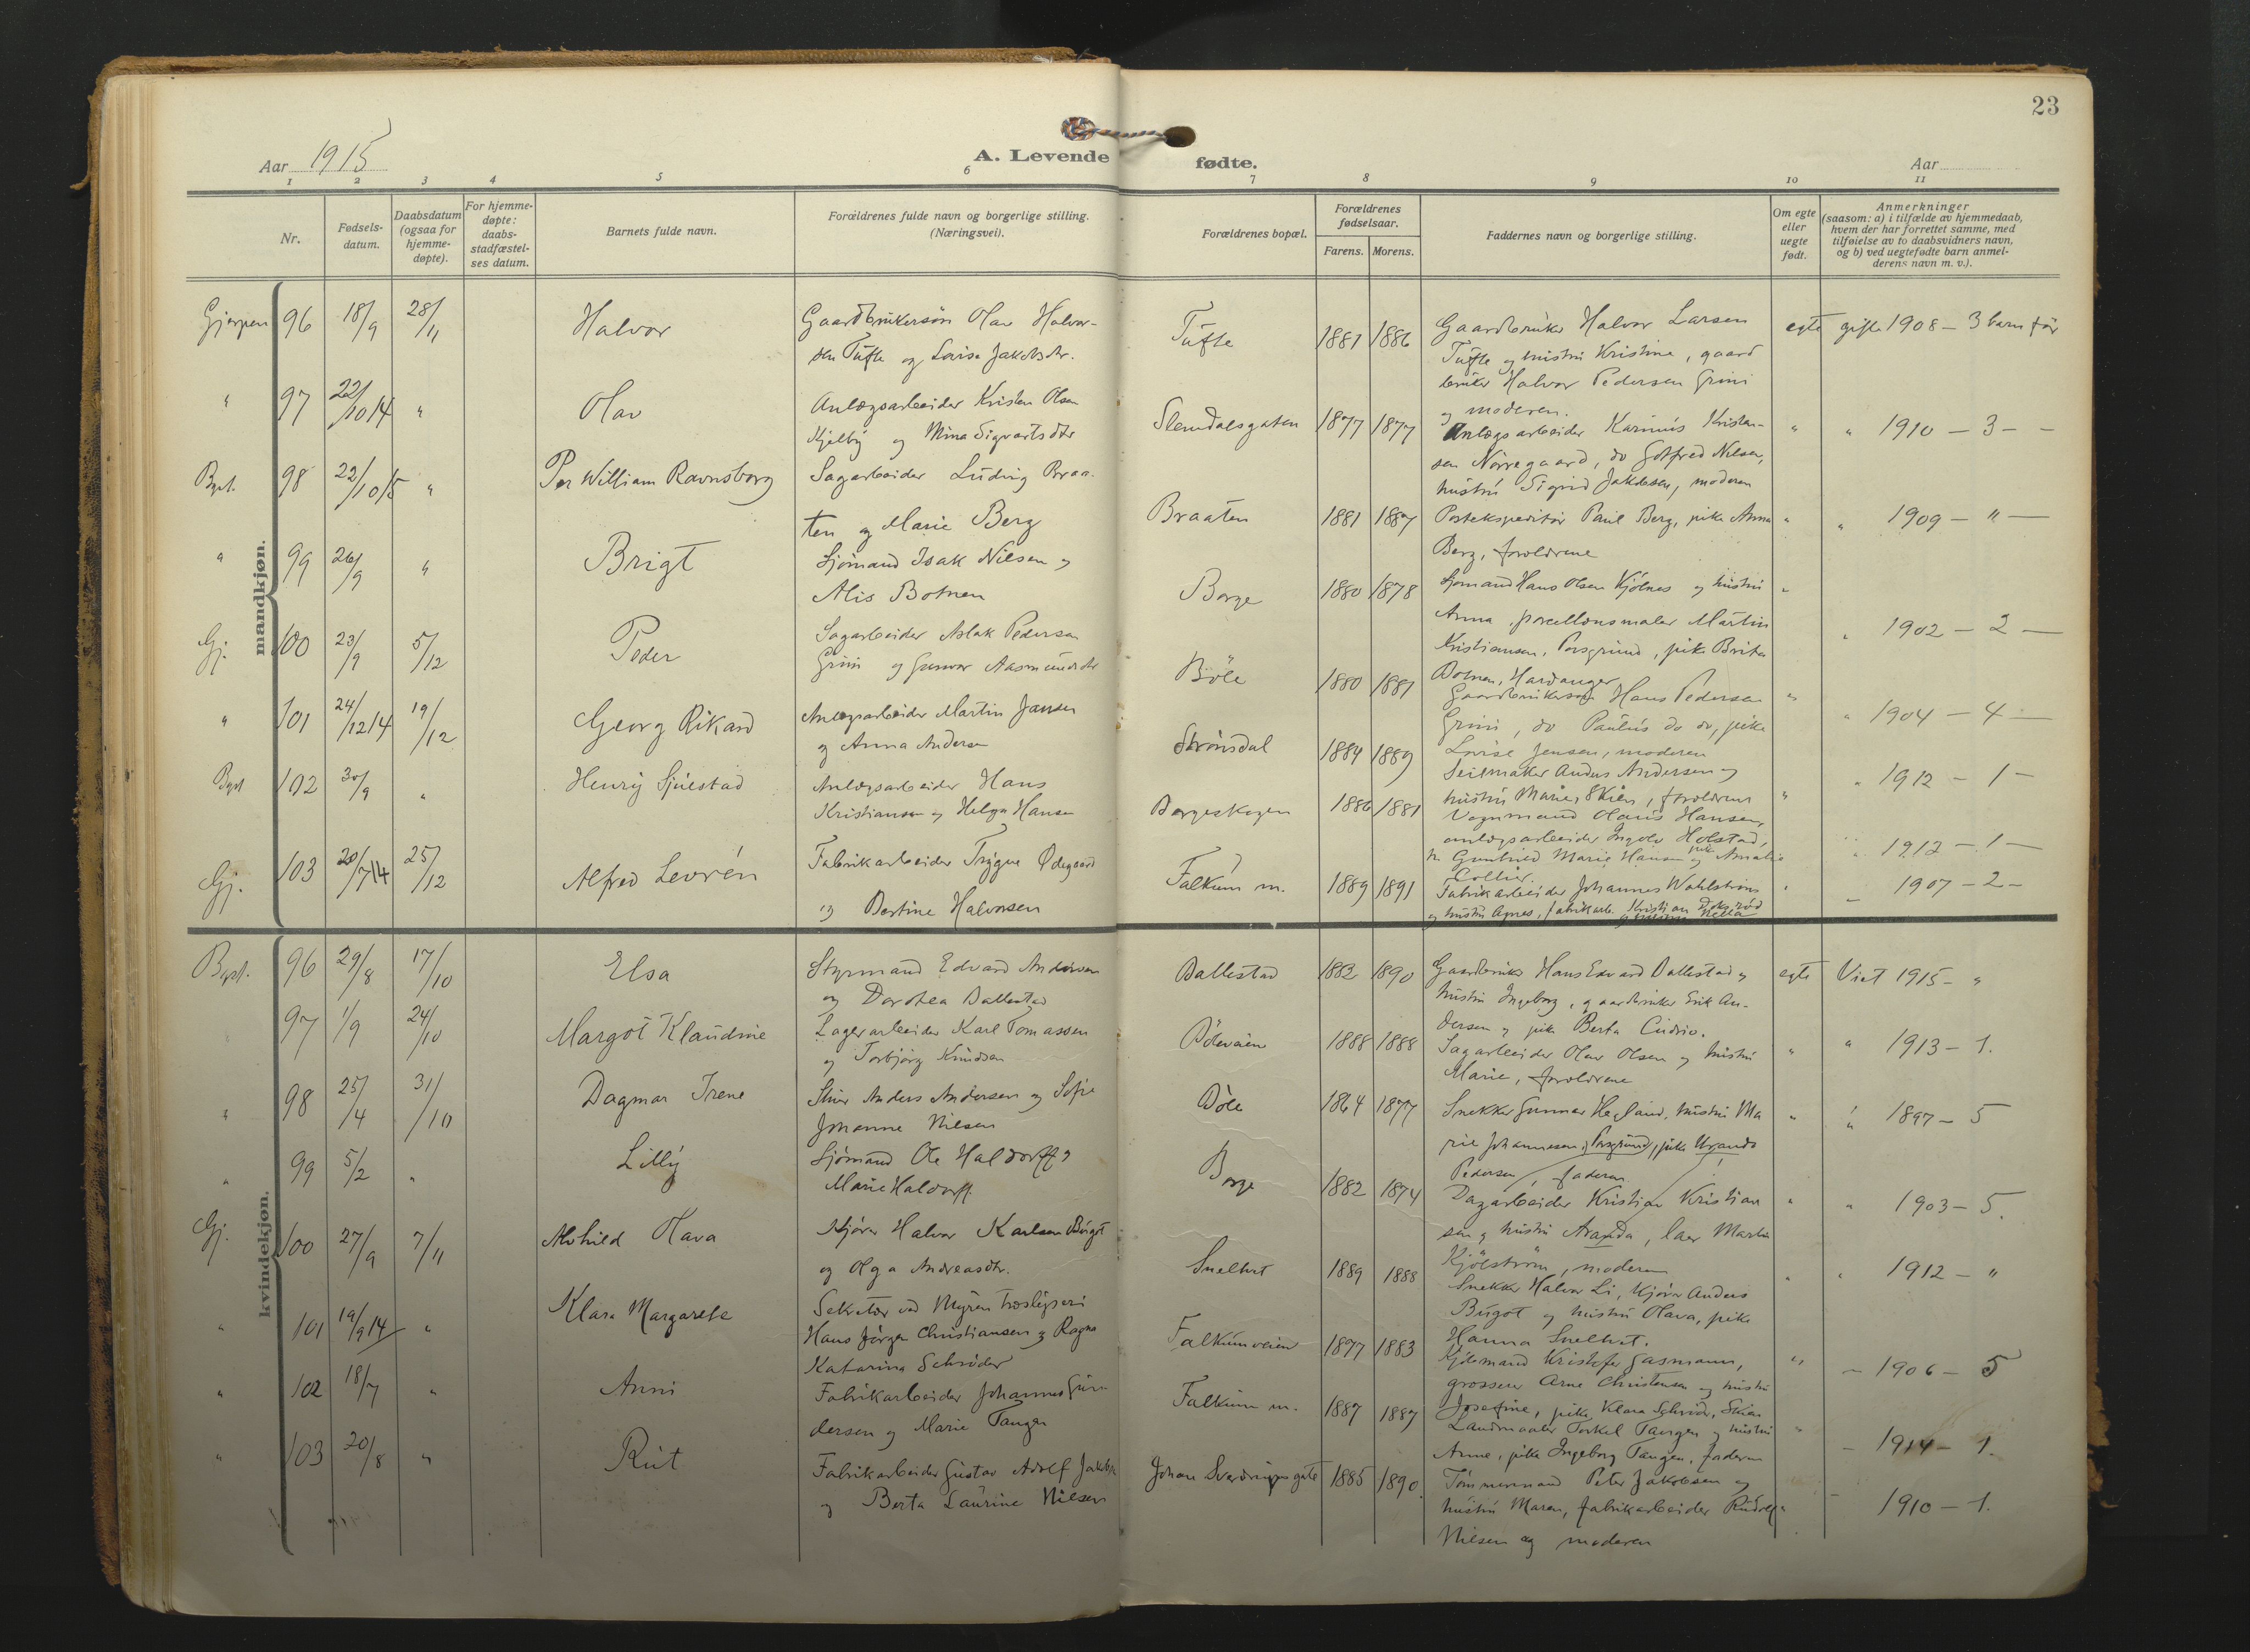 23
Aar 1915
A. Levende fødte.
Aar
1 2 3 4 5 6 7 8 9 10 11
Nr.
Fødsels-
datum.
Daabsdatum
(ogsaa for
hjemme-
døpte).
For hjemme-
døpte:
daabs-
stadfæstel-
ses datum.
Barnets fulde navn.
Forældrenes fulde navn og borgerlige stilling.
(Næringsvei).
Forældrenes bopæl.
Forældrenes
fødselsaar.
Farens. Morens.
Faddernes navn og borgerlige stilling.
Om egte
eller
uegte
født.
Anmerkninger
(saasom: a) i tilfælde av hjemmedaab,
hvem der har forrettet samme, med
tilføielse av to daabsvidners navn,
og b) ved uegtefødte barn anmel-
derens navn m. v.).
mandkjøn.
Gjerpen 96 18/9 28/11 Halvor
Gaardbrukersøn Olav Halvor-
sen Tufte og Lovise Jakobsdtr.
Tufte 1881 1886
Gaardbruker Halvor Larsen
Tufte og hustru Kristine, gaard
bruker Halvor Pedersen Grini
og moderen.
egte gifte 1908 - 3 barn før
" 97 22/10 14 " Olav
Anlægsarbeider Kristen Olsen
Kjelby og Mina Sigvartsdtr
Slemdalsgaten 1877 1877
Anlægsarbeider Karinius Kristen-
sen Nørregaard, do Gotfred Nilsen,
hustru Sigrid Jakobsen, moderen
" " 1910 - 3 - -
Bgst. 98 22/10 15 " Per William Ravnsborg
Sagarbeider Ludvig Braa-
ten og Marie Berg
Braaten 1881 1887
Postekspeditør Paul Berg, pike Anna
Berg, forældrene
" " 1909 - " -
" 99 26/9 " Brigt
Sjømand Isak Nilsen og
Alis Botnen
Borge 1880 1878
Sjømand Hans Olsen Kjølnes og hustru
Anna, porcellænsmaler Martin
Kristiansen, Porsgrund, pike Brita
Botnen, Hardanger
" " 1902 - 2 -
Gj. 100 23/9 5/12 Peder
Sagarbeider Aslak Pedersen
Grini og Gunvor Aasmundsdtr
Bøle 1880 1881
Gaardbrukersøn Hans Pedersen
Grini, do Paulus do do, pike
Lovise Jensen, moderen
" " 1904 - 4 -
" 101 24/12 14 19/12 Georg Rikard
Anlægsarbeider Martin Jansen
og Anna Andersen
Strømsdal 1884 1889
Seilmaker Anders Andersen og
hustru Marie, Skien, forældrene
" 1912 - 1 -
Bgst 102 30/9 " Henry Sjulestad
Anlægsarbeider Hans
Kristiansen og Helga Hansen
Borgeskogen 1886 1881
Vognmand Olaus Hansen,
anlægsarbeider Ingolv Holstad,
Gunhild Marie Hansen og pike Amalie
" " 1912 - 1 -
Gj. 103 20/7 14 25/12 Alfred Levrén
Fabrikarbeider Trygve Ødegaard
og Bertine Halvorsen
Falkum m. 1889 1891
Fabrikarbeider Johannes Wahlstrøm
og hustru Agnes, fabrikarb. Kristian
" 1907 - 2 -
kvindekjøn.
Bgst. 96 29/8 17/10 Elsa
Styrmand Edvard Andersen
og Dorthea Ballestad
Ballestad 1882 1890
Gaardbruker Hans Edvard Ballestad og
hustru Ingeborg, gaardbruker Erik An-
dersen og pike Berta
egte Viet 1915 - "
97 1/9 24/10 Margot Klaudine
Lagerarbeider Karl Tomassen
og Torbjørg Knudsen
Bøleveien 1888 1888
Sagarbeider Olav Olsen og hustru
Marie, forældrene
" " 1913 - 1.
" 98 25/4 31/10 Dagmar Irene
Anders Andersen og Sofie
Johanne Nilsen
Bøle 1864 1877
Snekker Gunnar Hegland, hustru Ma
rie Johannesen, Porsgrund, pike
Pedersen, faderen
" " 1897 - 5
" 99 5/2 " Lilly
Sjømand Ole Haldorff og
Marie Haldorff
Borge 1882 1874
Dagarbeider Kristian Kristian
sen og hustru Aranda, Martin
Kjølstrøm, moderen
" " 1903 - 5.
Gj. 100 27/9 7/11 Alvhild Olava
Kjører Halvor Karlsen Bugot
og Olga Andreasdtr.
Snelhut 1889 1888
Snekker Halvor Li, Kjører Anders
Bugot og hustru Olava, pike
Hanna Snelhut.
" " 1912 - "
" 101 19/9 14 " Klara Margarete
Sekretær ved Myren Træsliperi
Hans Jørgen Christiansen og Ragna
Katarina Schrøder
Falkumveien 1877 1883
Kjøbmand Kristofer Gasmann,
grosserer Arne Christensen og hustru
Josefine, pike Klara Schrøder, Skien
" - 1906 - 5
" 102 18/7 " Anni
Fabrikarbeider Johannes Gun-
dersen og Marie Tangen
Falkum m. 1887 1887
Landmaaler Torkel Tangen og hustru
Anne, pike Ingeborg Tangen, faderen
" - 1914 - 1.
" 103 20/8 " Rut
Fabrikarbeider Gustav Adolf Jakobsen
og Berta Laurine Nilsen
Johan Sverdrupsgate 1885 1890
Tømmermand Peter Jakobsen og
hustru Maren, fabrikarbeider Rudolf
Nilsen og moderen
" - 1910 - 1.